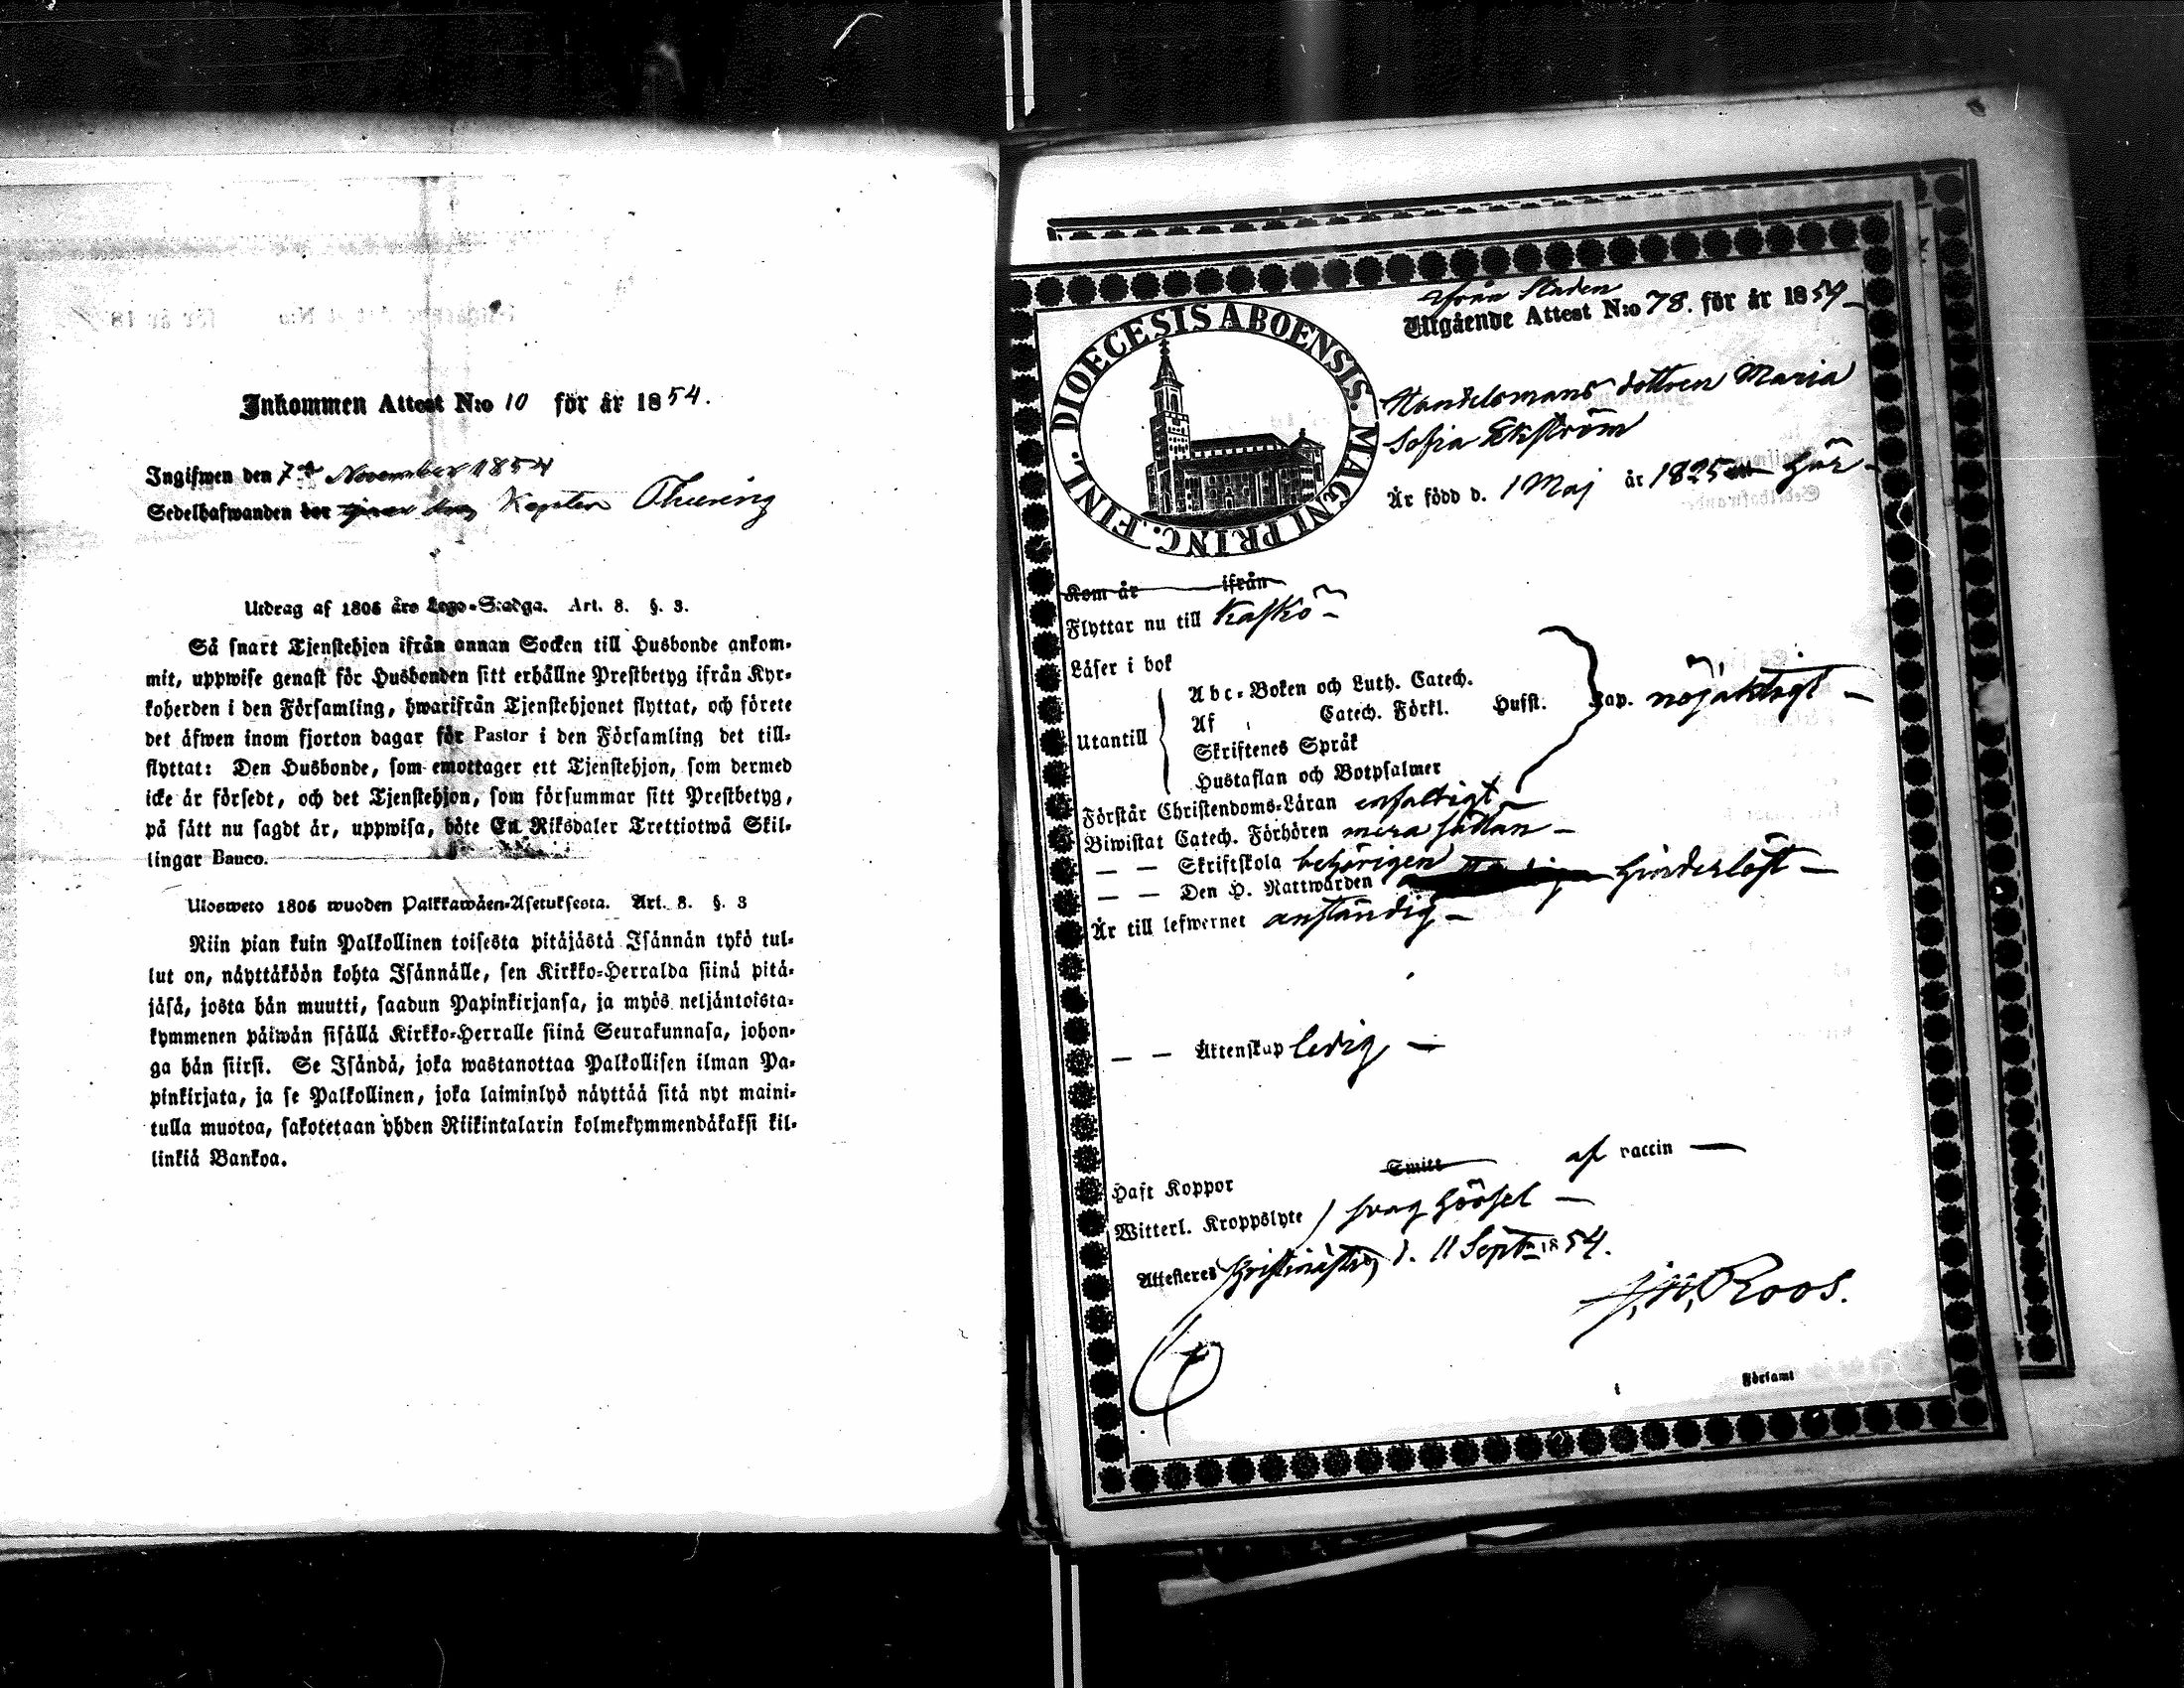 Inkommen Attest N:o 10 för år 1854.
Ingifwen den 7de November 1854
Sedelhafwanden bor hos Kapten Thuring
Utdrag af 1805 års Lego-Stadga. Art. 8. §. 3.
Så snart Tjenstehjon ifrån annan Socken till Husbonde ankom-
mit, uppwise genast för Husbonden sitt erhållne Prestbetyg ifrån Kyr-
koherden i den Församling, hwarifrån Tjenstehjonet flyttat, och förete
det äfwen inom fjorton dagar för Pastor i den Församling det till-
flyttat: Den Husbonde, som emottager ett Tjenstehjon, som dermed
icke är försedt, och det Tjenstehjon, som försummar sitt Prestbetyg,
på sätt nu sagdt är, uppwisa, böte En Riksdaler Trettiotwå Skil-
lingar Banco.
Ulosweto 1805 wuoden Palkkawäen-Asetuksesta. Art. 8. §. 3
Niin pian kuin Palkollinen toisesta pitäjästä Isännän tykö tul-
lut on, näyttäköön kohta Isännälle, sen Kirkko-Herralda siinä pitä-
jäsä, josta hän muutti, saadun Papinkirjansa, ja myös neljäntoista-
kymmenen päiwän sisällä Kirkko-Herralle siinä Seurakunnasa, johon-
ga hän siirsi. Se Isändä, joka wastanottaa Palkollisen ilman Pa-
pinkirjata, ja se Palkollinen, joka laiminlyö näyttää sitä nyt maini-
tulla muotoa, sakotetaan yhden Riikintalarin kolmekymmendäkaksi kil-
linkiä Bankoa.
DIOECESIS ABOENSIS. MAGNI PRINC. FINL.
ifrån Staden
Utgående Attest N:o 78. för år 1854
Handelsmans dottren Maria
Sofia Ekström
Är född d. 1 Maj år 1825 här
Kom år ifrån
Flyttar nu till Kaskö
Läser i bok
Utantill
Abc-Boken och Luth. Catech.
Af Catech. Förkl. Husst. Cap. nöjaktigt
Skriftenes Språk
Hustaflan och Botpsalmer
Förstår Christendoms-Läran enfaldigt
Biwistat Catech. Förhören mera sällan
— — Skriftskola behörigen
— — Den H. Nattwarden hinderlöst
Är till lefwernet anständig
— — Äktenskap ledig
Haft Koppor Smitt af vaccin
Witterl. Kroppslyte swag hörsel
Attesteres Christinestad d. 11 Sept. 1854.
J. M. Roos.
i Församl